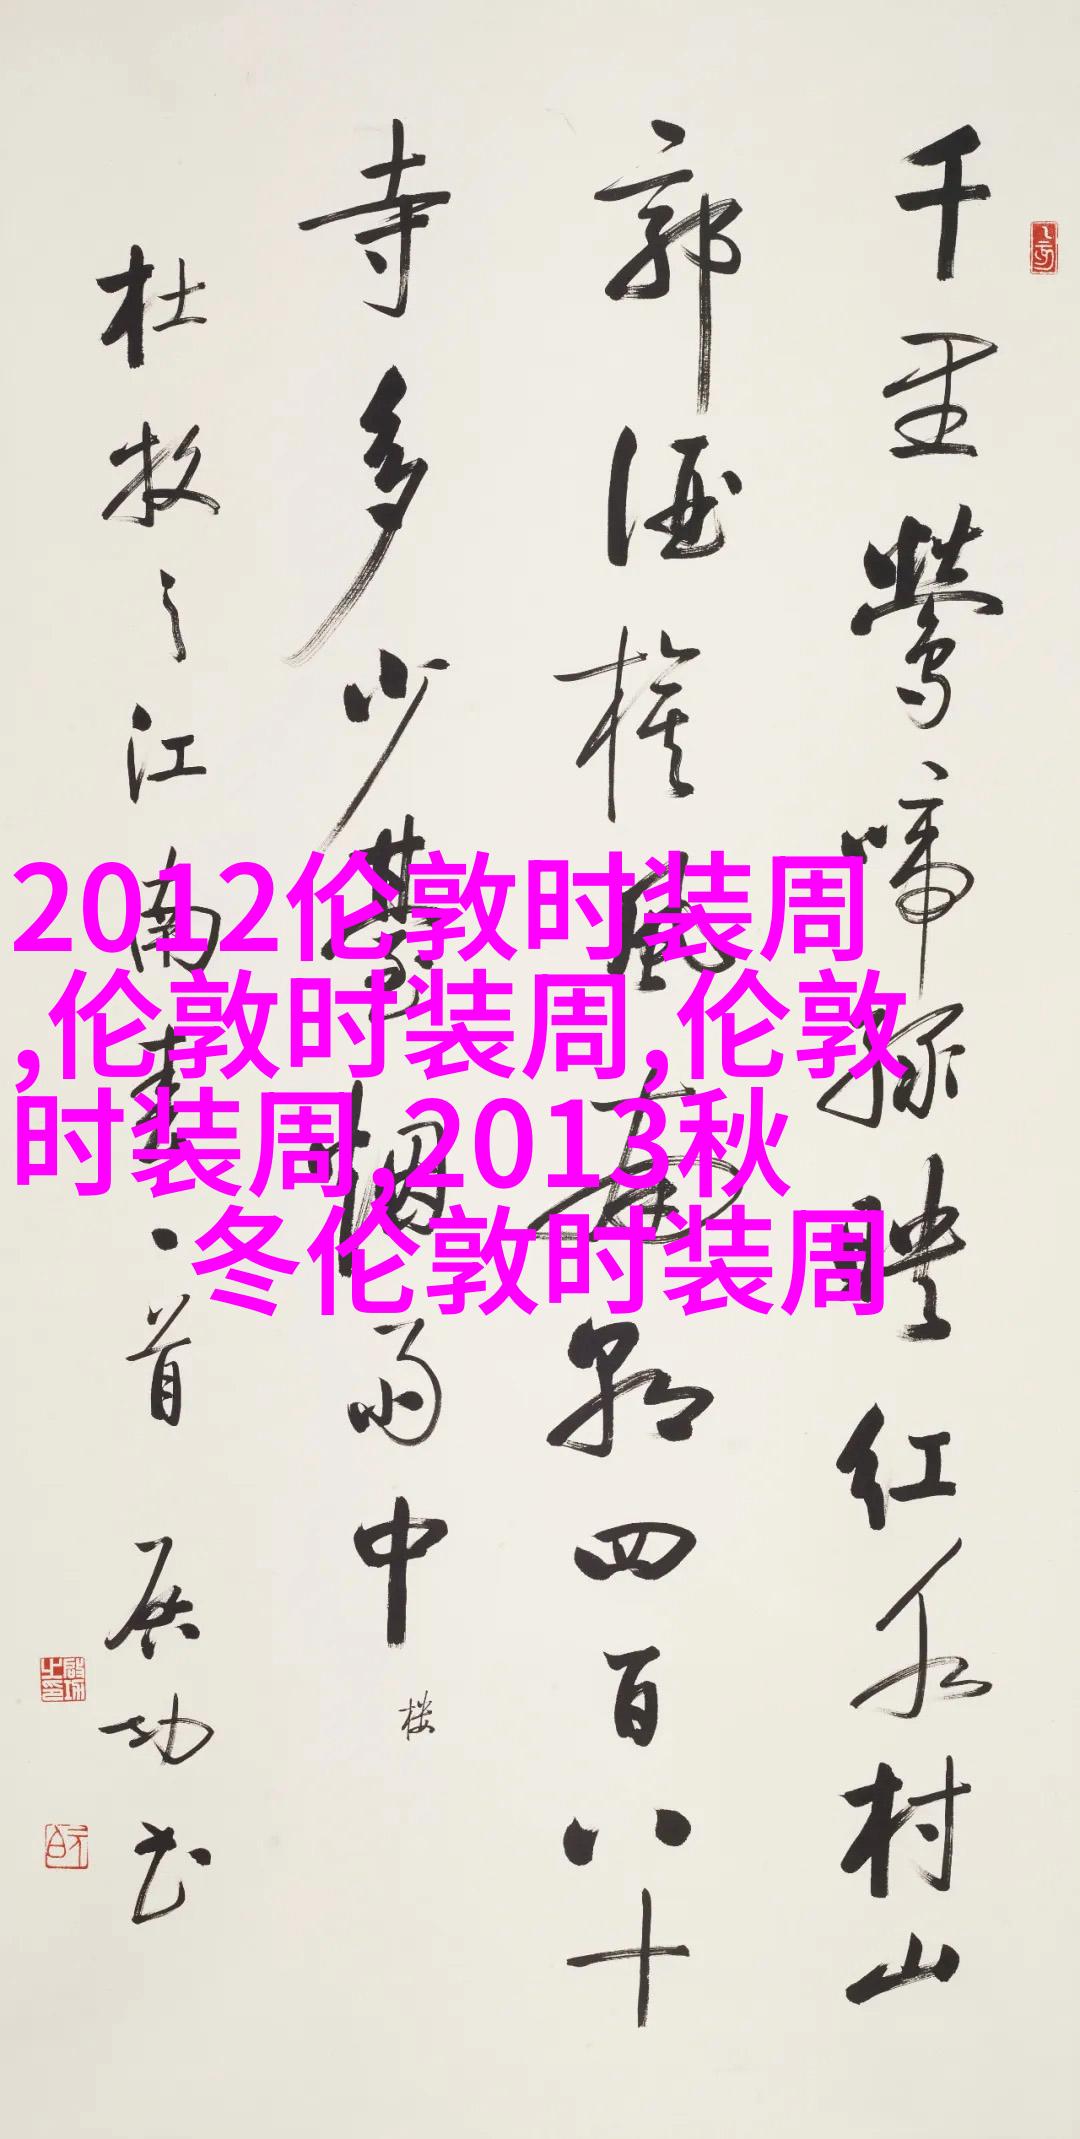 千里莺啼绿暎红水村山
郭酒旗风南朝四百八十
寺多少臺烟雨中
楼
杜牧之江南春一首 启功书
2012伦敦时装周
,伦敦时装周,伦敦
时装周,2013秋
冬伦敦时装周